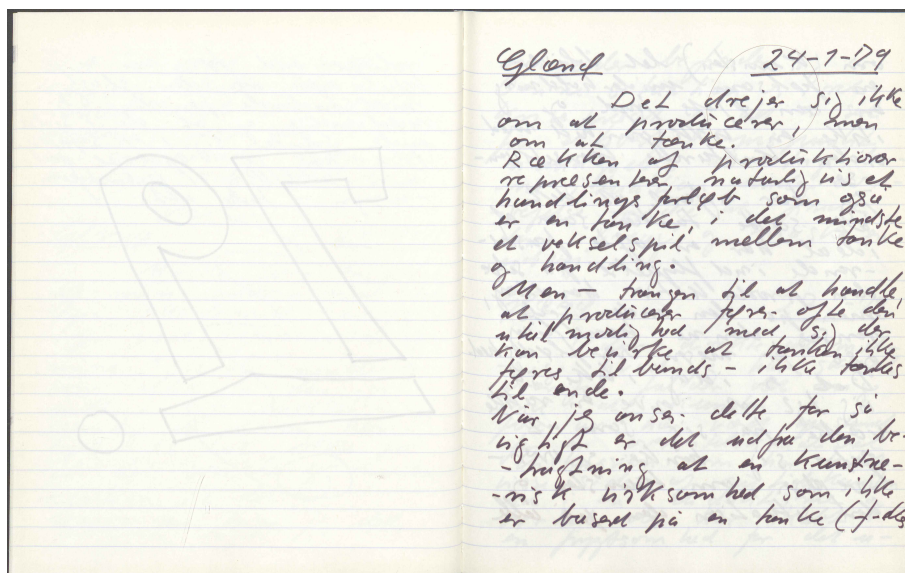 Gland 24-1-79
Det drejer sig ikke
om at producerer, men
om at tænke.
Rækken af produktioner
repræsenterer naturligvis et
handlingsforløb som også
er en tanke, i det mindste
et vekselspil mellem tanke
og handling.
Men – trangen til at handle,
at producerer fører ofte den
utålmodighed med sig der
kan bevirke at tanken ikke
føres tilbunds – ikke tænkes
til ende.
Når jeg anser dette for så
vigtigt er det udfra den be-
-tragtning at en kunstne-
-risk virksomhed som ikke
er baseret på en tanke (